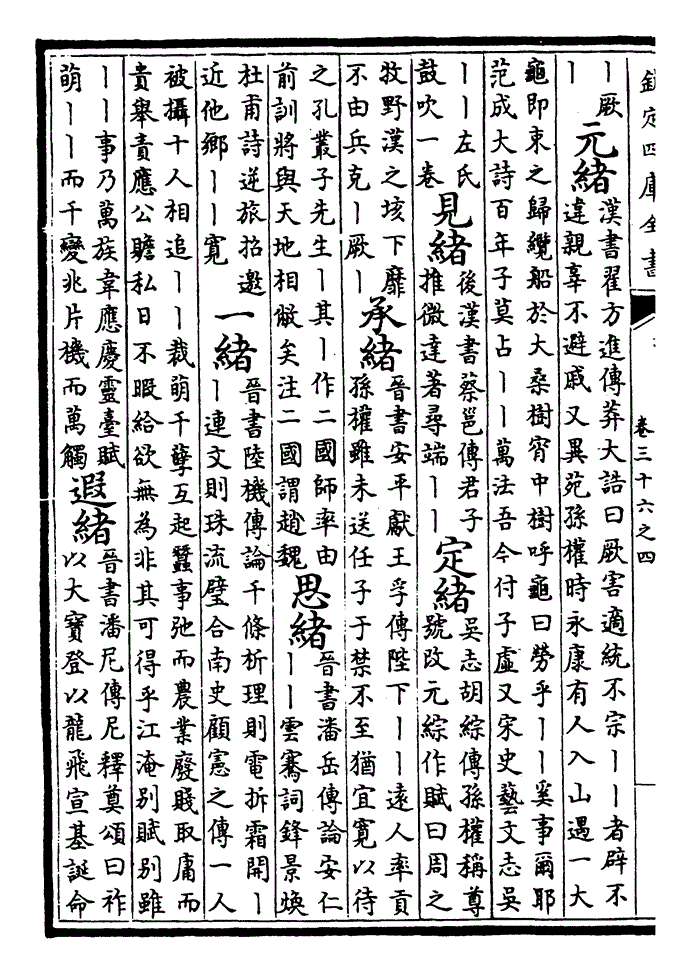 欽定四庫全書 卷三十六之四
丨厥
丨
元緒
漢書翟方進傳莽大誥曰厥害適統不宗丨丨者辟不
違親辜不避戚又異苑孫權時永康有人入山遇一大
龜即束之歸纜船於大桑樹宵中樹呼龜曰勞乎丨丨奚事爾耶
范成大詩百年子莫占丨丨萬法吾今付子虛又宋史藝文志吳
丨丨左氏
鼓吹一卷
見緒
後漢書蔡邕傳君子
推微達著尋端丨丨
定緒
吳志胡綜傳孫權稱尊
號改元綜作賦曰周之
牧野漢之垓下靡
不由兵克丨厥丨
承緒
晉書安平獻王孚傳陛下丨丨遠人率貢
孫權雖未送任子于禁不至猶宜寛以待
之孔叢子先生丨其丨作二國師率由
前訓將與天地相敝矣注二國謂趙魏
思緒
晉書潘岳傳論安仁
丨丨雲騫詞鋒景煥
杜甫詩逆旅招邀
近他鄉丨丨寛
一緒
晉書陸機傳論千條析理則電拆霜開丨
丨連文則珠流璧合南史顧憲之傳一人
被攝十人相追丨丨裁萌千孽互起蠶事弛而農業廢賤取庸而
貴舉責應公贍私日不暇給欲無為非其可得乎江淹別賦別雖
丨丨事乃萬族韋應慶靈臺賦
萌丨丨而千變兆片機而萬觸
遐緒
晉書潘尼傳尼釋奠頌曰祚
以大寶登以龍飛宣基誕命